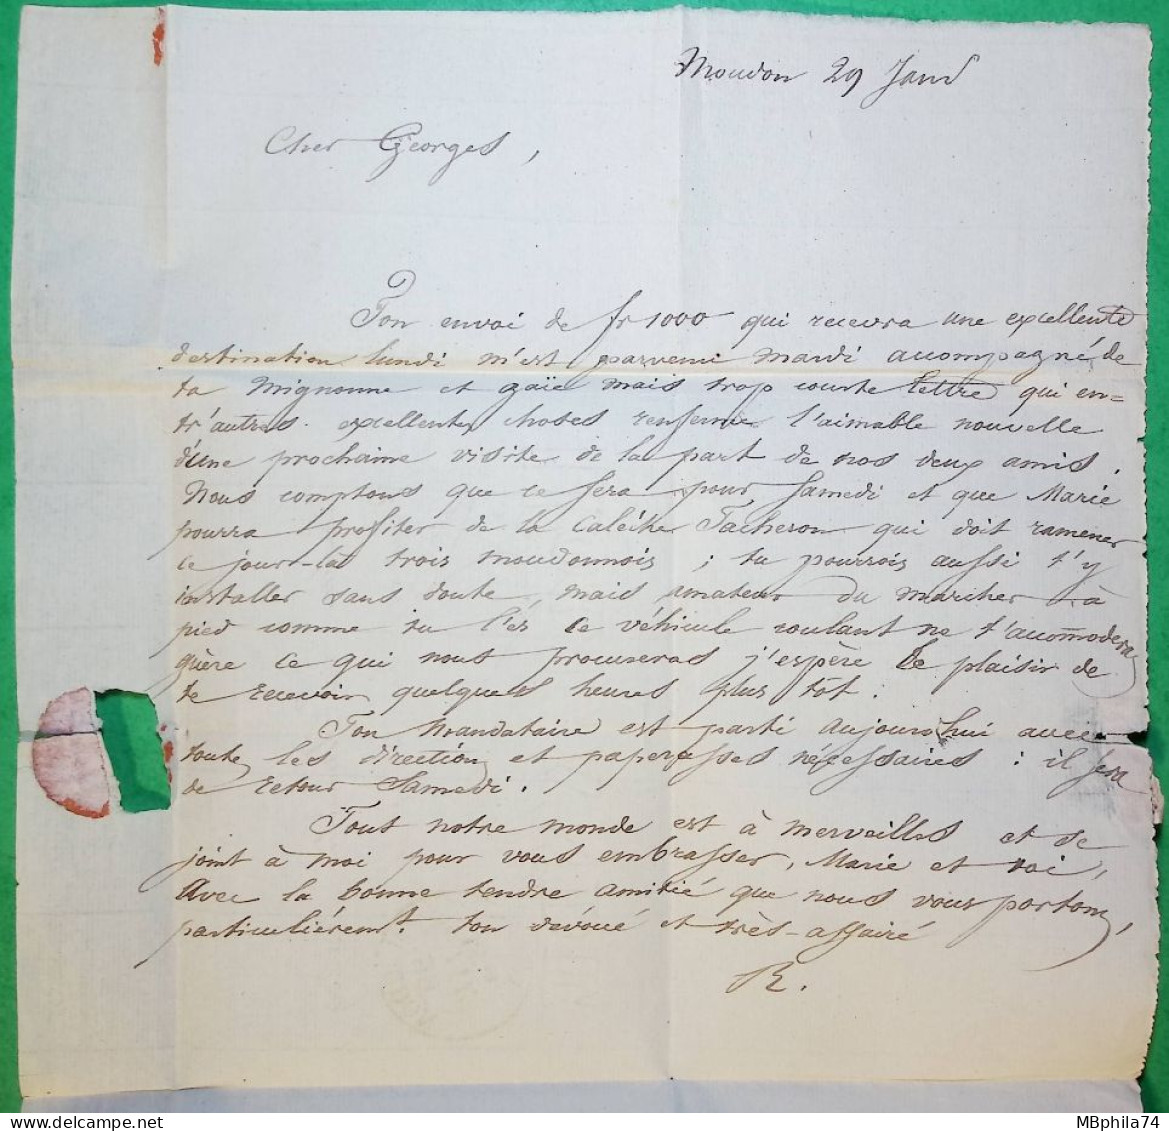 Moudon 29 Janv
Cher Georges,
Ton envoi de fr 1000 qui recevra une excellente
destination lundi m'est parvenu mardi accompagné de
ta mignonne et gaïe mais trop courte lettre qui en=
tr'autres excellentes choses renferme l'aimable nouvelle
d'une prochaine visite de la part de nos deux amis.
Nous comptons que ce sera pour samedi et que Marie
pourra profiter de la calèche Tacheron qui doit ramener
ce jour-là trois moudonnois ; tu pourrois aussi t'y
installer sans doute, mais amateur du marcher à
pied comme tu l'es ce véhicule roulant ne t'accomodera
guère ce qui nous procurera j'espère le plaisir de
te recevoir quelques heures plus tôt.
Ton mandataire est parti aujourd'hui avec
toutes les directions et paperasses nécessaires : il sera
de retour Samedi.
Tout notre monde est à merveilles et se
joint à moi pour vous embrasser, Marie et toi,
avec la bonne tendre amitié que nous vous portons,
particulièremt. ton dévoué et très-affairé
R.
MBphila74